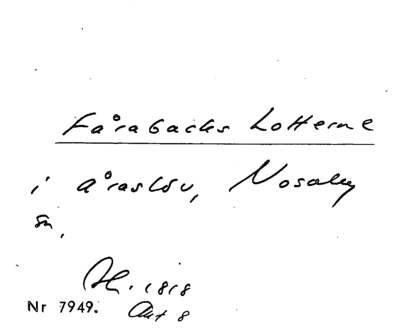 Fårabacks Lotterne
i Åraslöv, Nosaby
sn.
Sk. 1818
Nr 7949. Akt 8